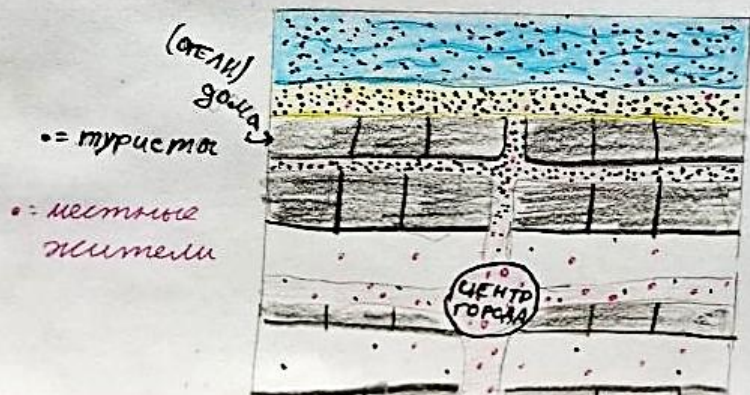 (ОТЕЛИ)
дома
•= туристы
•= местные
жители
ЦЕНТР
ГОРОДА